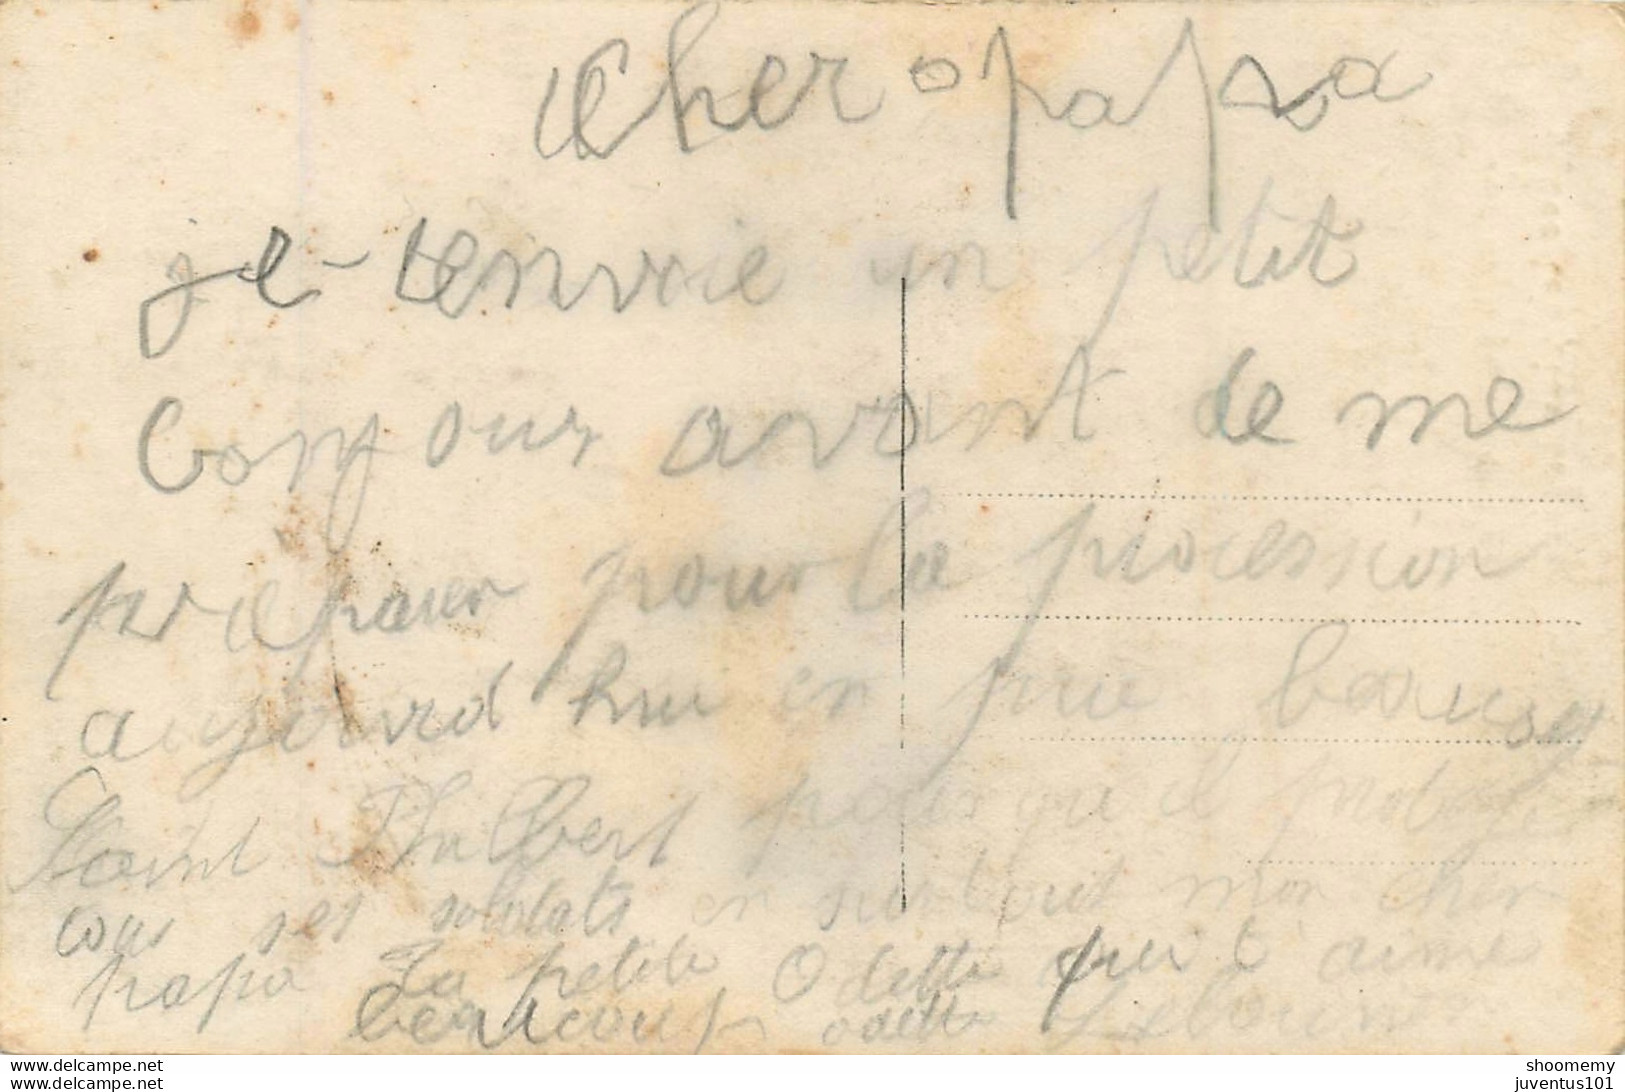 Cher papa
je tenvoie un petit
bonjour avant de me
preparer pour la procession
aujourd hui en prie
Saint Hulbert pour qu il protege
tous ses soldats en surtout mon cher
papa Ta petite Odette qui t aime
beaucoup odette
shoomemy
juventus101